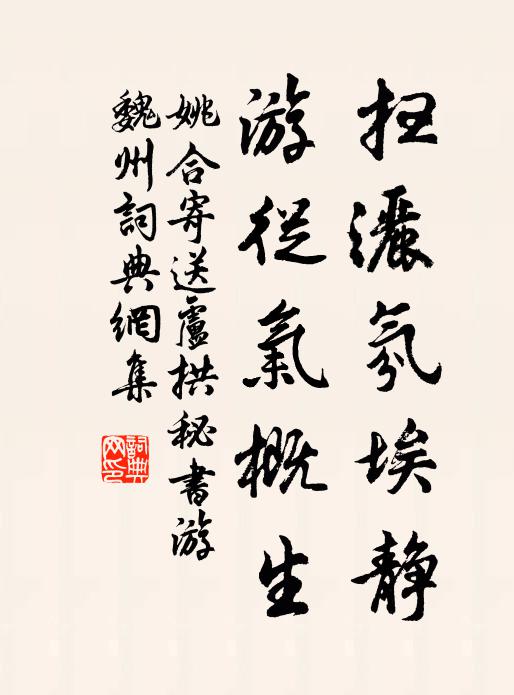 扫灑氛埃静
游從氣概生
姚合寄送盧拱秘書游
魏州詞典網集
詞典网印